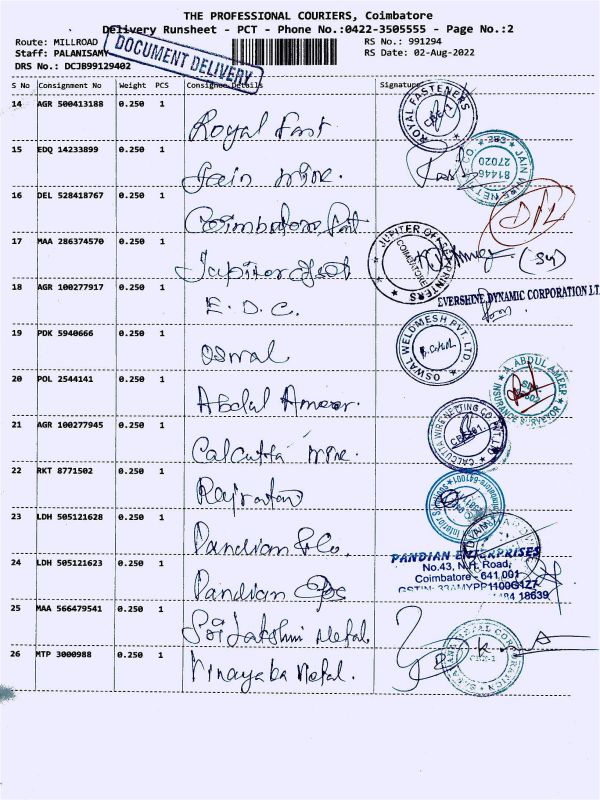 THE PROFESSIONAL COURIERS, Coimbatore
Delivery Runsheet - PCT - Phone No.:0422-3505555 - Page No.:2
Route: MILLROAD
RS No.: 991294
Staff: PALANISAMY
RS Date: 02-Aug-2022
DRS No.: DCJB99129402
DOCUMENT DELIVERY
S No Consignment No Weight PCS Consignee Details Signature
14 AGR 500413188 0.250 1 Royal Fast
ROYAL FASTENERS
15 EDQ 14233899 0.250 1 Jain wire.
JAIN WIRE NETT CO.
81446 27020
16 DEL 528418767 0.250 1 Coimbatore
17 MAA 286374570 0.250 1 Jupiter
JUPITER PRINTERS
COIMBATORE
18 AGR 100277917 0.250 1 E.D.C.
EVERSHINE DYNAMIC CORPORATION
19 PDK 5940666 0.250 1 Oswal
OSWAL WELDMESH PVT. LTD.
20 POL 2544141 0.250 1 Abdul Ameer.
A. ABDUL AMEER
INSURANCE SURVEYOR
21 AGR 100277945 0.250 1 Calcutta wire.
CALCUTTA WIRE NETTING CO. PVT. LTD
22 RKT 8771502 0.250 1
23 LDH 505121628 0.250 1 Pandian & Co.
24 LDH 505121623 0.250 1 Pandian
PANDIAN ENTERPRISES
No.43, N.H. Road,
Coimbatore - 641 001
GSTIN: 33AMYPP1100G1Z7
18639
25 MAA 566479541 0.250 1 Sri Lakshmi Metal
26 MTP 3000988 0.250 1 Vinayaka Metal.
METAL CORPORATION